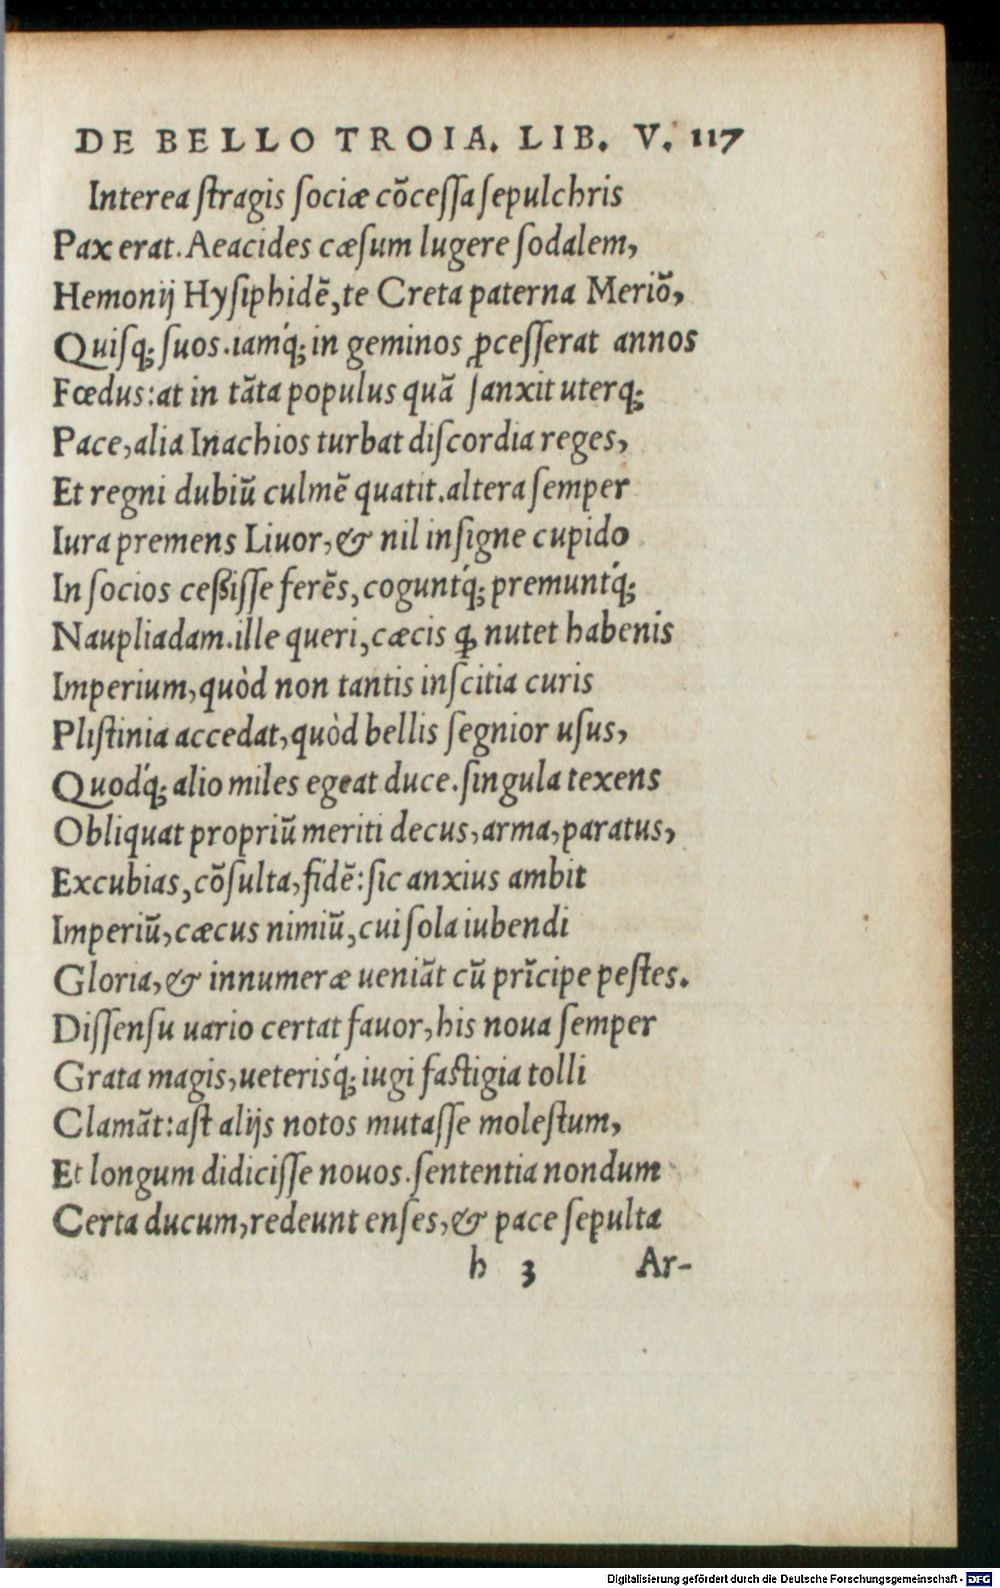 DE BELLO TROIA. LIB. V. 117
Interea ſtragis ſociæ cōceſſa ſepulchris
Pax erat. Aeacides cæſum lugere ſodalem,
Hemonij Hyſiphidē, te Creta paterna Meriō,
Quiſq; ſuos. iamq́; in geminos ꝓceſſerat annos
Fœdus: at in tāta populus quā ſanxit uterq;
Pace, alia Inachios turbat diſcordia reges,
Et regni dubiū culmē quatit. altera ſemper
Iura premens Liuor, & nil inſigne cupido
In ſocios ceßiſſe ferēs, coguntq́; premuntq́;
Naupliadam. ille queri, cæcis ꝙ nutet habenis
Imperium, quòd non tantis inſcitia curis
Pliſtinia accedat, quòd bellis ſegnior uſus,
Quodq́; alio miles egeat duce. ſingula texens
Obliquat propriū meriti decus, arma, paratus,
Excubias, cōſulta, fidē: ſic anxius ambit
Imperiū, cæcus nimiū, cui ſola iubendi
Gloria, & innumeræ ueniāt cū prīcipe peſtes.
Diſſenſu uario certat fauor, his noua ſemper
Grata magis, ueterisq́; iugi faſtigia tolli
Clamāt: aſt alijs notos mutaſſe moleſtum,
Et longum didiciſſe nouos. ſententia nondum
Certa ducum, redeunt enſes, & pace ſepulta
h 3 Ar-
Digitalisierung gefördert durch die Deutsche Forschungsgemeinschaft - DFG